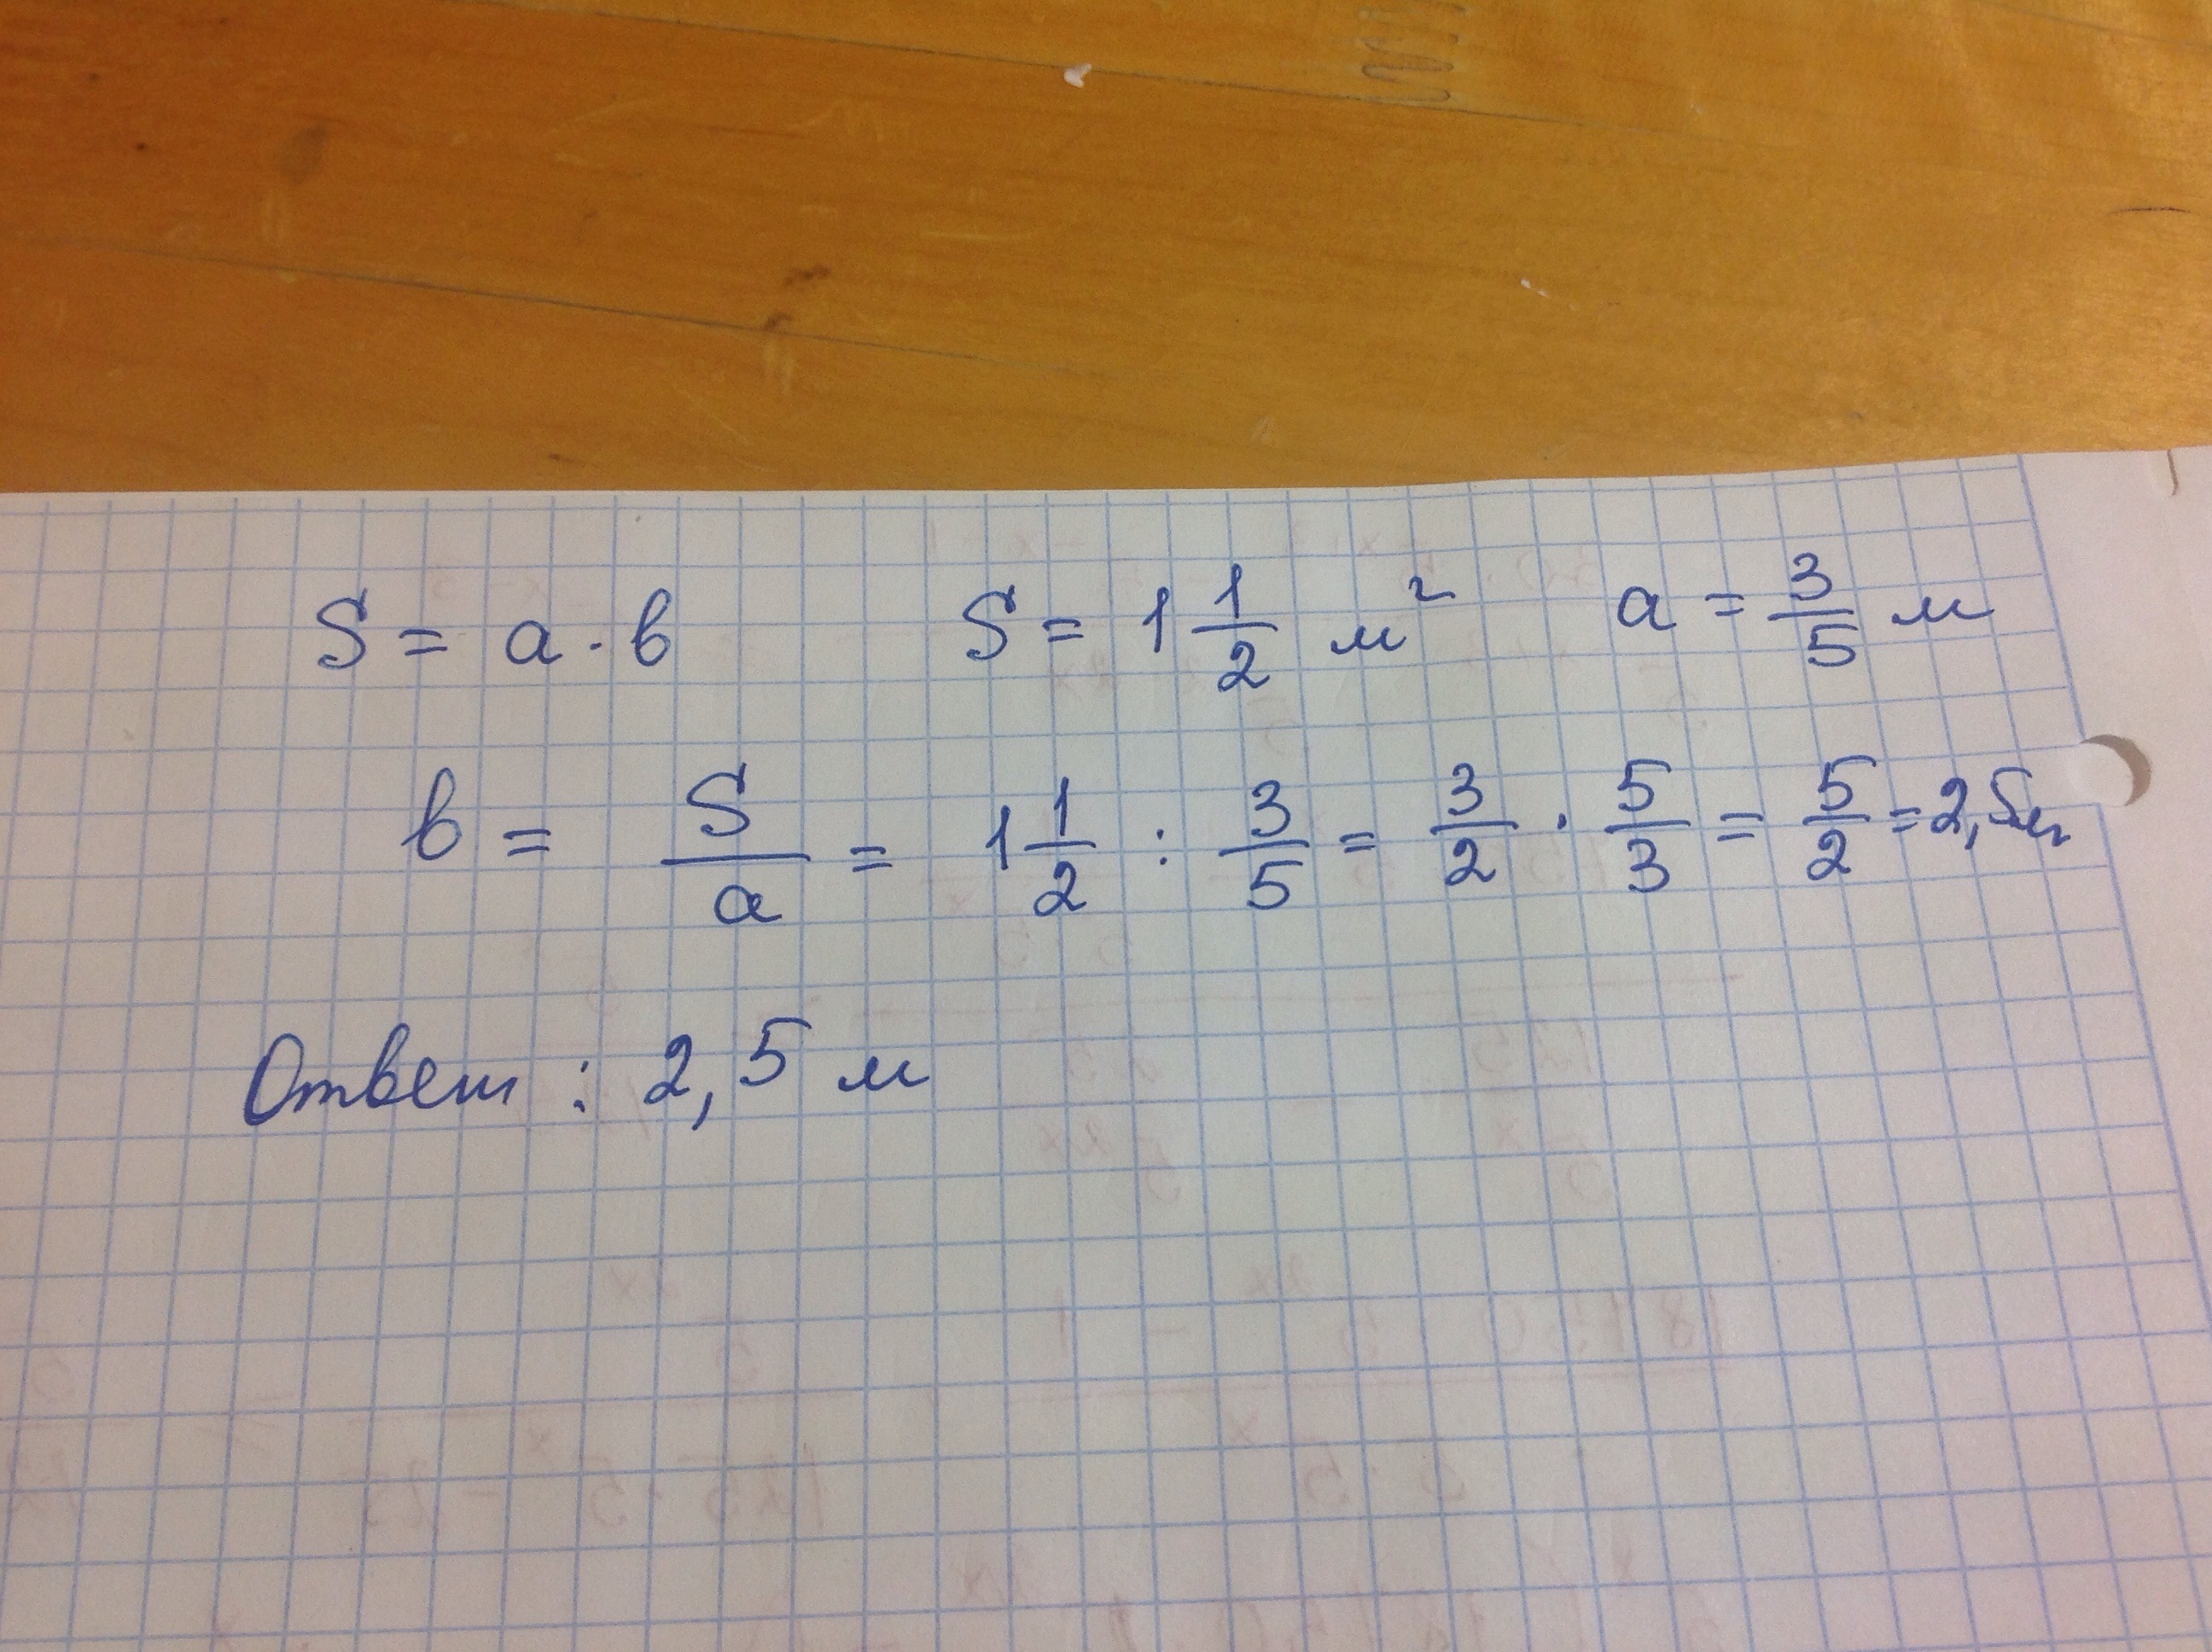 S = a · b S = 1 1/2 м² a = 3/5 м
b = S/a = 1 1/2 : 3/5 = 3/2 · 5/3 = 5/2 = 2,5м
Ответ : 2,5 м